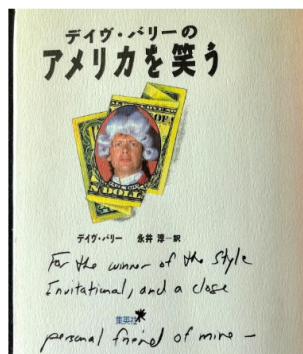 デイヴ・バリーの
アメリカを笑う
OF
DOL
デイヴ・バリー 永井 淳―訳
For the winner of the Style
Invitational, and a close
集英社
personal friend of mine –